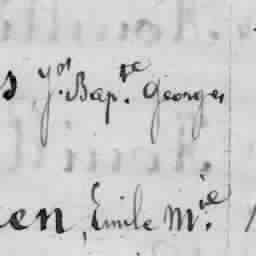 s Jn. Bap.te Georges
en, Emile M.ie